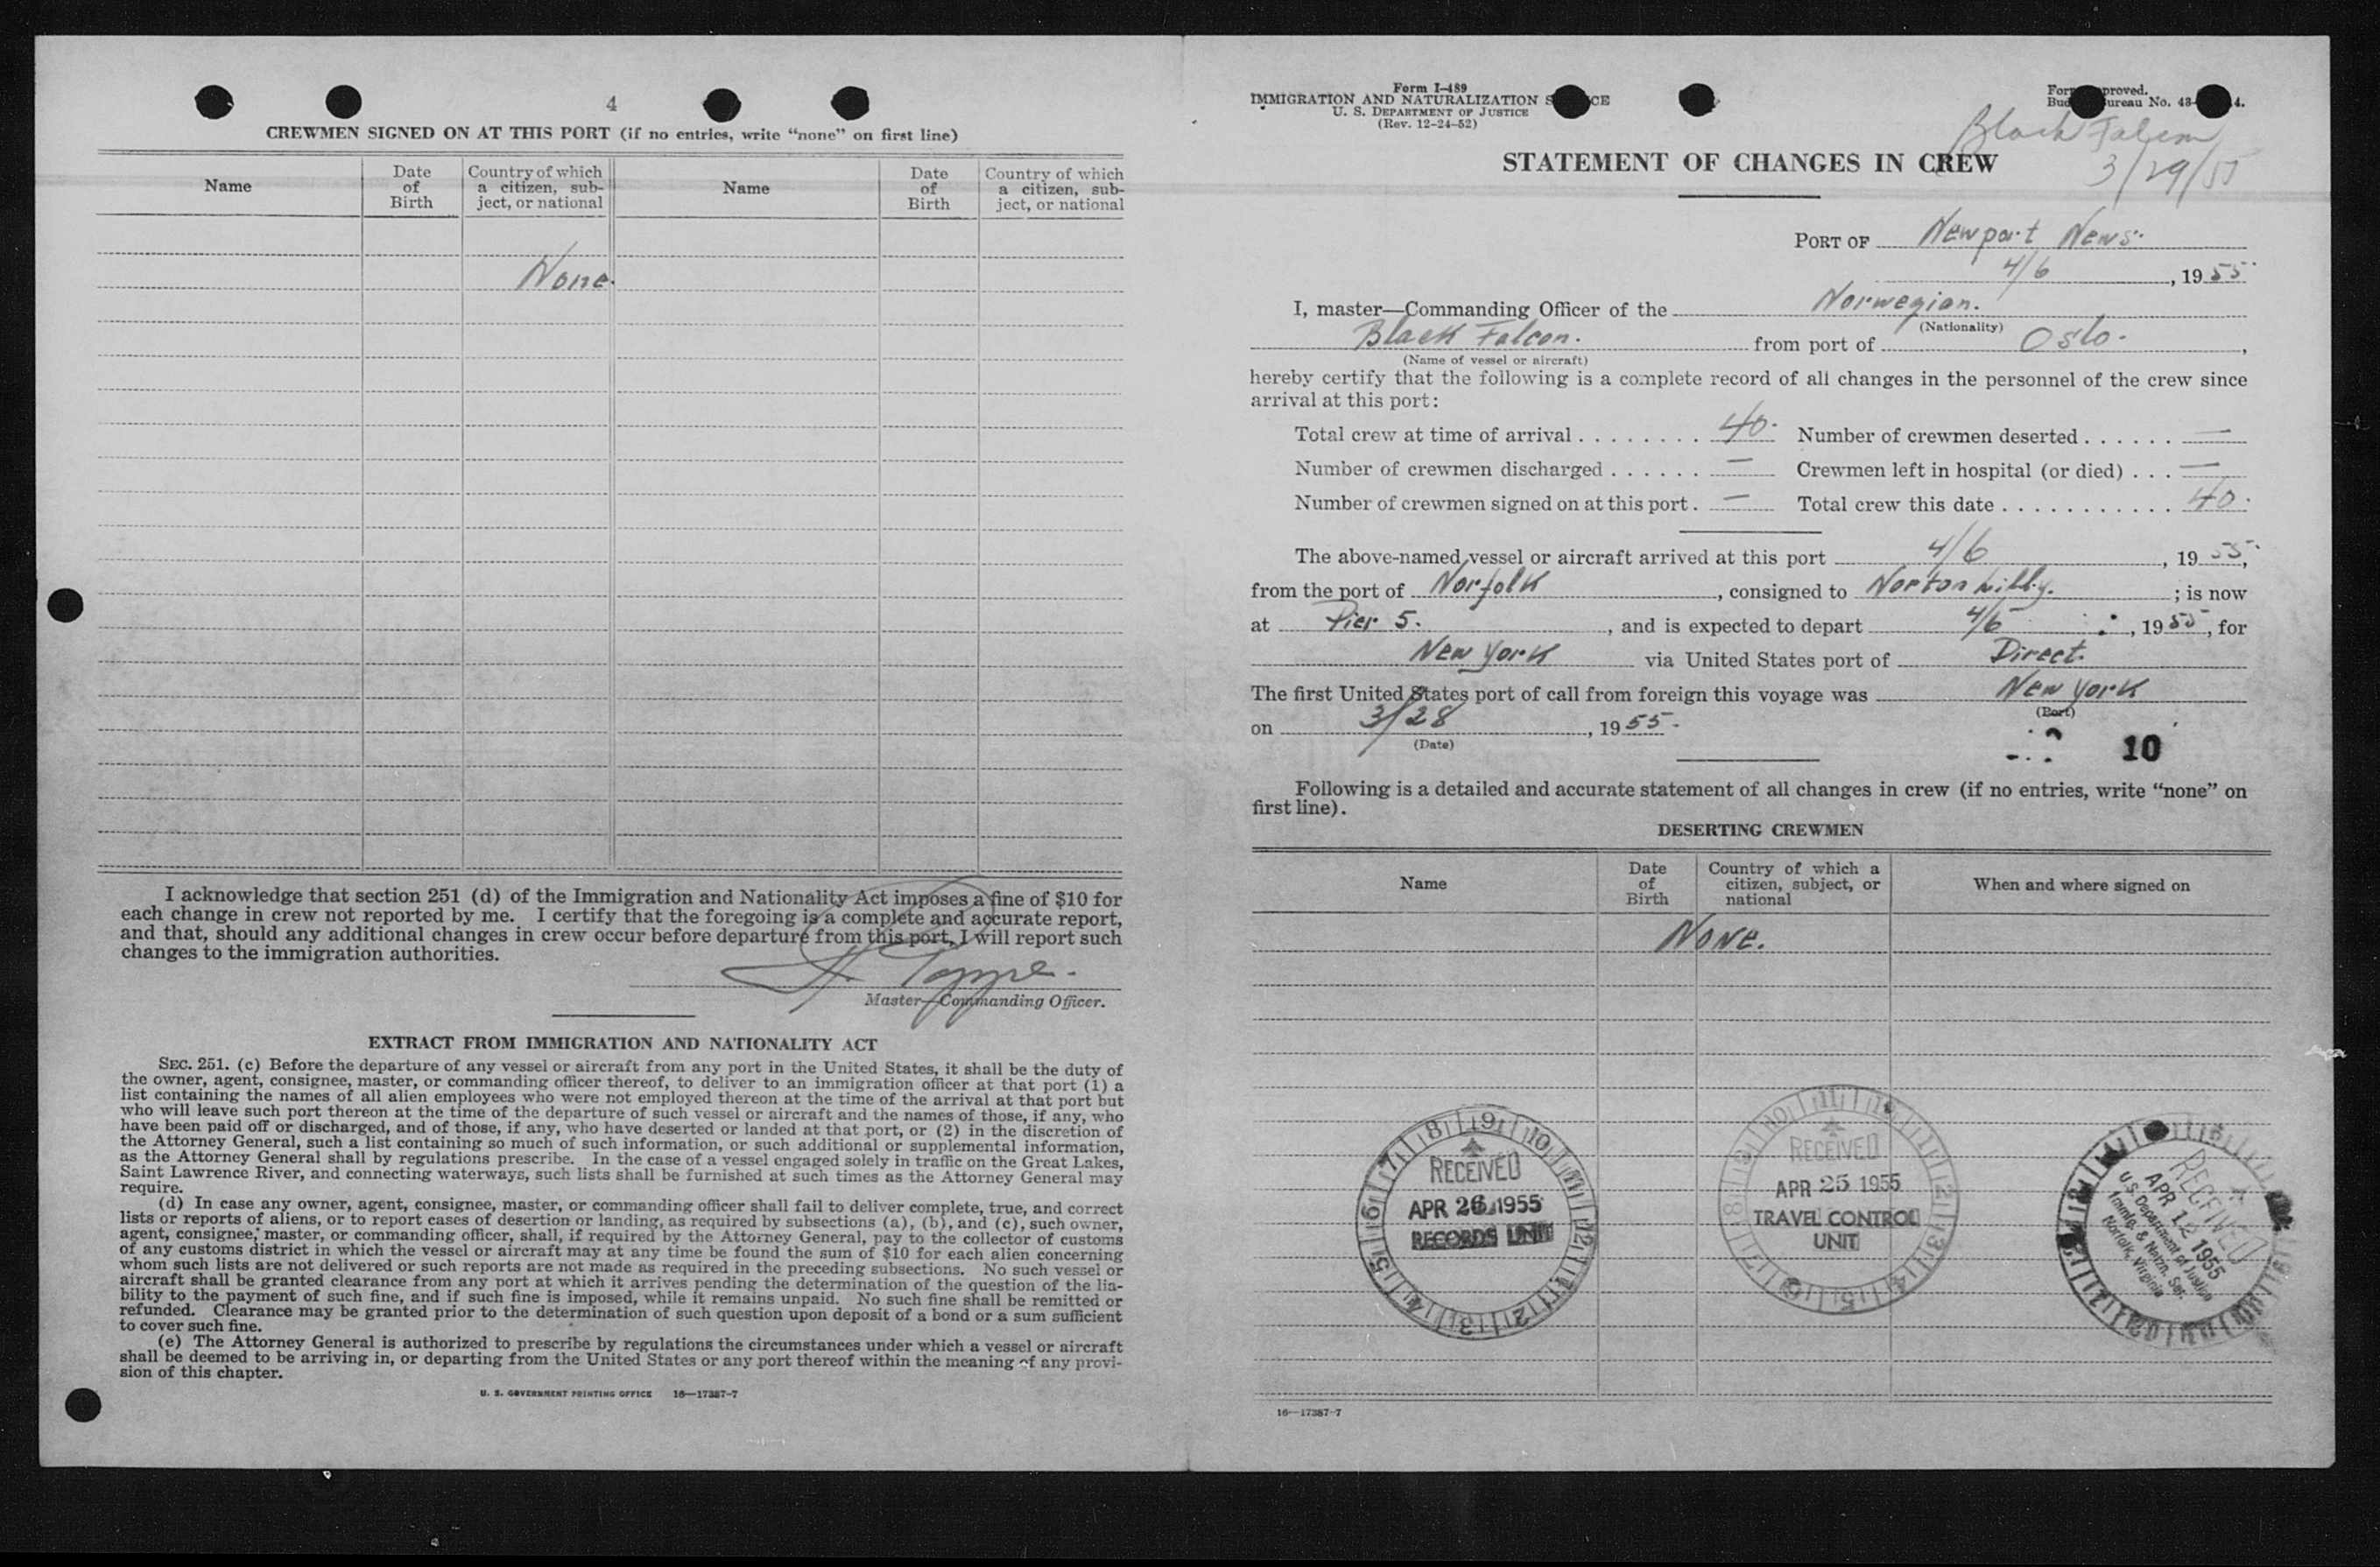 4
CREWMEN SIGNED ON AT THIS PORT (if no entries, write “none” on first line)
Name
Date of Birth
Country of which a citizen, subject, or national
Name
Date of Birth
Country of which a citizen, subject, or national
None.
I acknowledge that section 251 (d) of the Immigration and Nationality Act imposes a fine of $10 for
each change in crew not reported by me. I certify that the foregoing is a complete and accurate report,
and that, should any additional changes in crew occur before departure from this port, I will report such
changes to the immigration authorities.
Master—Commanding Officer.
EXTRACT FROM IMMIGRATION AND NATIONALITY ACT
SEC. 251. (c) Before the departure of any vessel or aircraft from any port in the United States, it shall be the duty of
the owner, agent, consignee, master, or commanding officer thereof, to deliver to an immigration officer at that port (1) a
list containing the names of all alien employees who were not employed thereon at the time of the arrival at that port but
who will leave such port thereon at the time of the departure of such vessel or aircraft and the names of those, if any, who
have been paid off or discharged, and of those, if any, who have deserted or landed at that port, or (2) in the discretion of
the Attorney General, such a list containing so much of such information, or such additional or supplemental information,
as the Attorney General shall by regulations prescribe. In the case of a vessel engaged solely in traffic on the Great Lakes,
Saint Lawrence River, and connecting waterways, such lists shall be furnished at such times as the Attorney General may
require.
(d) In case any owner, agent, consignee, master, or commanding officer shall fail to deliver complete, true, and correct
lists or reports of aliens, or to report cases of desertion or landing, as required by subsections (a), (b), and (c), such owner,
agent, consignee, master, or commanding officer, shall, if required by the Attorney General, pay to the collector of customs
of any customs district in which the vessel or aircraft may at any time be found the sum of $10 for each alien concerning
whom such lists are not delivered or such reports are not made as required in the preceding subsections. No such vessel or
aircraft shall be granted clearance from any port at which it arrives pending the determination of the question of the lia-
bility to the payment of such fine, and if such fine is imposed, while it remains unpaid. No such fine shall be remitted or
refunded. Clearance may be granted prior to the determination of such question upon deposit of a bond or a sum sufficient
to cover such fine.
(e) The Attorney General is authorized to prescribe by regulations the circumstances under which a vessel or aircraft
shall be deemed to be arriving in, or departing from the United States or any port thereof within the meaning of any provi-
sion of this chapter.
U. S. GOVERNMENT PRINTING OFFICE 16—17387-7
Form I-489
IMMIGRATION AND NATURALIZATION
U. S. DEPARTMENT OF JUSTICE
(Rev. 12-24-52)
Black Falcon
3/29/55
STATEMENT OF CHANGES IN CREW
PORT OF Newport News.
4/6, 1955
I, master—Commanding Officer of the Norwegian.
(Nationality)
Black Falcon. from port of Oslo.,
(Name of vessel or aircraft)
hereby certify that the following is a complete record of all changes in the personnel of the crew since
arrival at this port:
Total crew at time of arrival . . . . . . . . 40. Number of crewmen deserted . . . . . . —
Number of crewmen discharged . . . . . . — Crewmen left in hospital (or died) . . . —
Number of crewmen signed on at this port . — Total crew this date . . . . . . . . . . . 40.
The above-named vessel or aircraft arrived at this port 4/6, 1955,
from the port of Norfolk, consigned to Norton Lilly.; is now
at Pier 5., and is expected to depart 4/6, 1955, for
New York via United States port of Direct.
The first United States port of call from foreign this voyage was New York
(Port)
on 3/28, 1955.
(Date)
10
Following is a detailed and accurate statement of all changes in crew (if no entries, write “none” on
first line).
DESERTING CREWMEN
Name
Date of Birth
Country of which a citizen, subject, or national
When and where signed on
None.
RECEIVED
APR 26 1955
RECORDS UNIT
RECEIVED
APR 25 1955
TRAVEL CONTROL
UNIT
RECEIVED
APR 12 1955
U.S. Department of Justice
Immig. & Natzn. Ser.
Norfolk, Virginia
16—17387-7